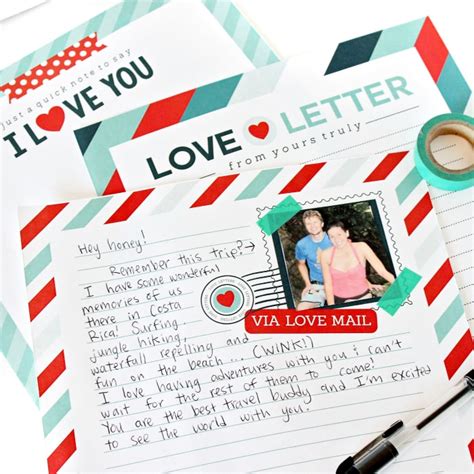 just a quick note to say
I LOVE YOU
LOVE LETTER
from yours truly
Hey honey!
Remember this trip?→
I have some wonderful
memories of us
there in Costa
Rica! Surfing,
jungle hiking,
waterfall repelling and
fun on the beach... (WINK!)
I love having adventures with you & can't
wait for the rest of them to come!
You are the best travel buddy and I'm excited
to see the world with you!
VIA LOVE MAIL